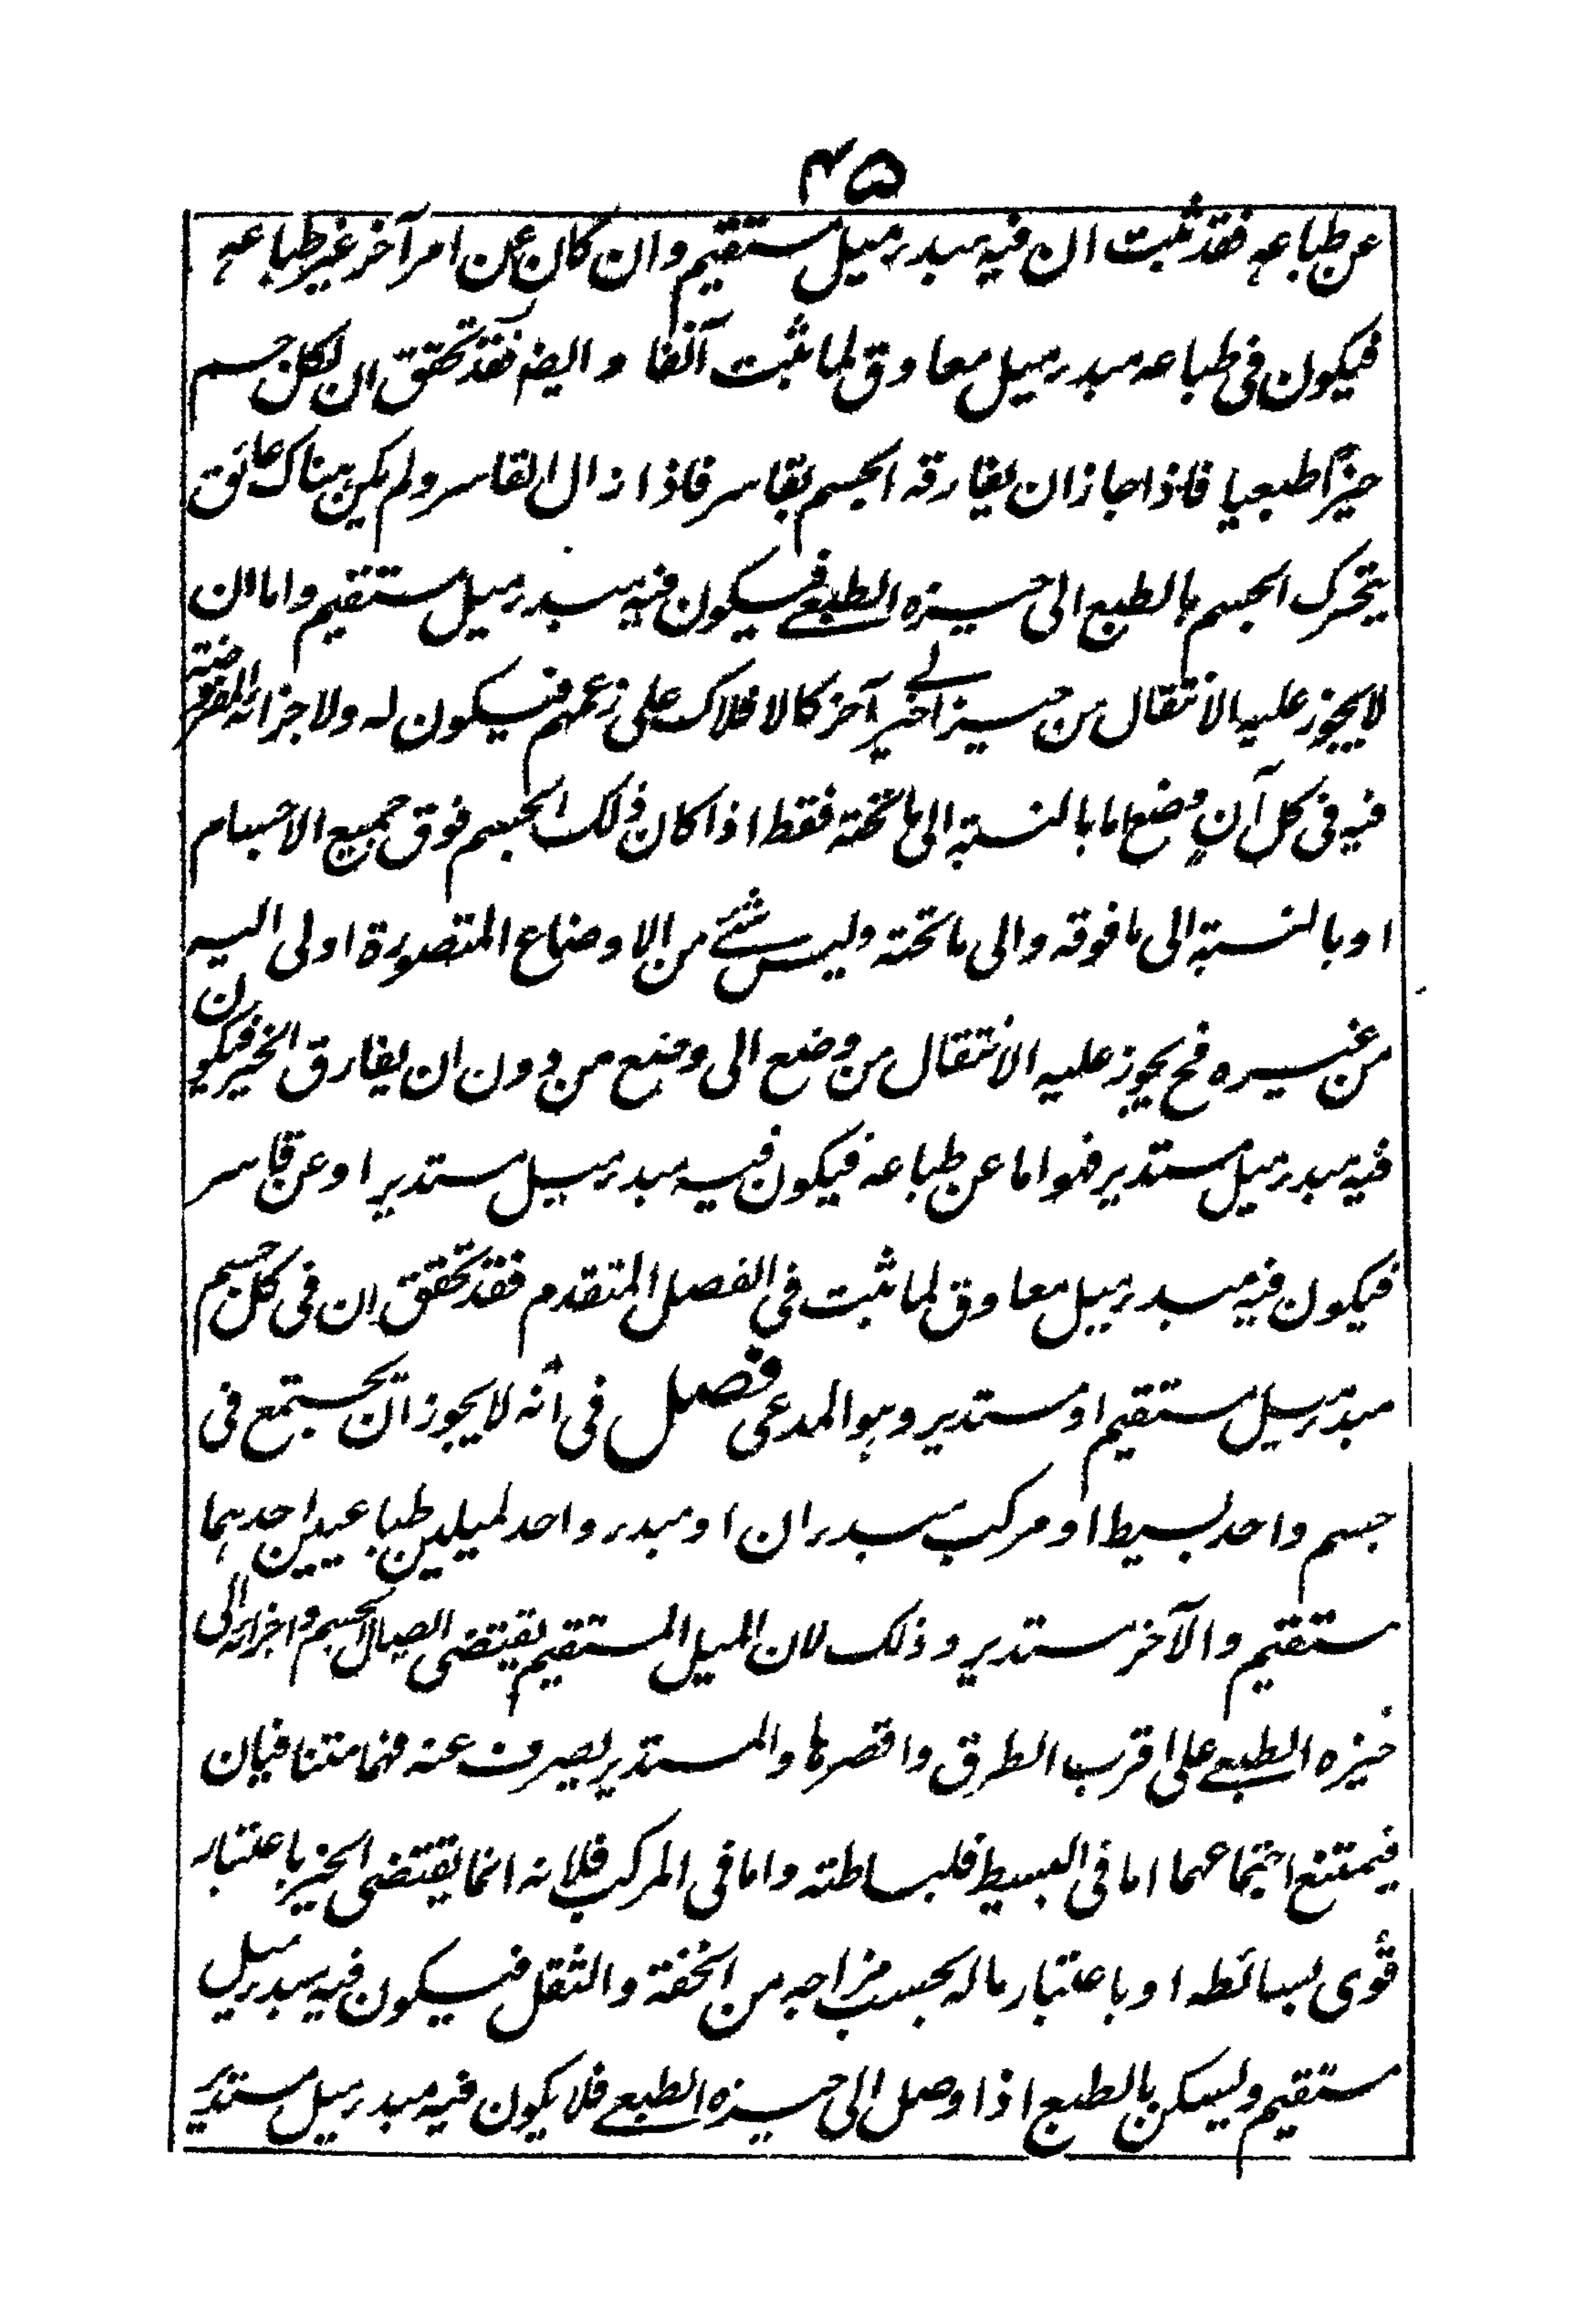 ۴۵
عن طباعه فقد ثبت ان فيه مبدء ميل مستقيم وان كان عن امر آخر غير طباعه
فيكون فى طباعه مبدء ميل معاوق لما ثبت آنفا وايضا فقد تحقق ان لكل جسم
حيزا طبعيا فاذا جاز ان يفارقه الجسم بقاسر فاذا زال القاسر ولم يكن هناك عائق
يتحرك الجسم بالطبع الى حيزه الطبعى فيكون فيه مبدء ميل مستقيم واما ان
لا يجوز عليه الانتقال من حيز الى حيز آخر كالافلاك على زعمهم فيكون له ولاجزائه المفروضة
فيه فى كل آن وضع اما بالنسبة الى ما تحته فقط اذا كان ذلك الجسم فوق جميع الاجسام
او بالنسبة الى ما فوقه والى ما تحته وليس شئ من الاوضاع المتصورة اولى اليه
من غيره فح يجوز عليه الانتقال من وضع الى وضع من دون ان يفارق الحيز فيكون
فيه مبدء ميل مستدير فهو اما عن طباعه فيكون فيه مبدء ميل مستدير او عن قاسر
فيكون فيه مبدء ميل معاوق لما ثبت فى الفصل المتقدم فقد تحقق ان فى كل جسم
مبدء ميل مستقيم او مستدير وهو المدعى فصل فى انه لا يجوز ان يجتمع فى
جسم واحد بسيط او مركب مبدءان او مبدء واحد لميلين طباعيين احدهما
مستقيم والآخر مستدير وذلك لان الميل المستقيم يقتضى ايصال الجسم واجزائه الى
حيزه الطبعى على اقرب الطرق واقصرها والمستدير يصرف عنه فهما متنافيان
فيمتنع اجتماعهما اما فى البسيط فلبساطته واما فى المركب فلانه انما يقتضى الحيز باعتبار
قوى بسائطه او باعتبار ما له بحسب مزاجه من الخفة والثقل فيكون فيه مبدء ميل
مستقيم ويسكن بالطبع اذا وصل الى حيزه الطبعى فلا يكون فيه مبدء ميل مستدير